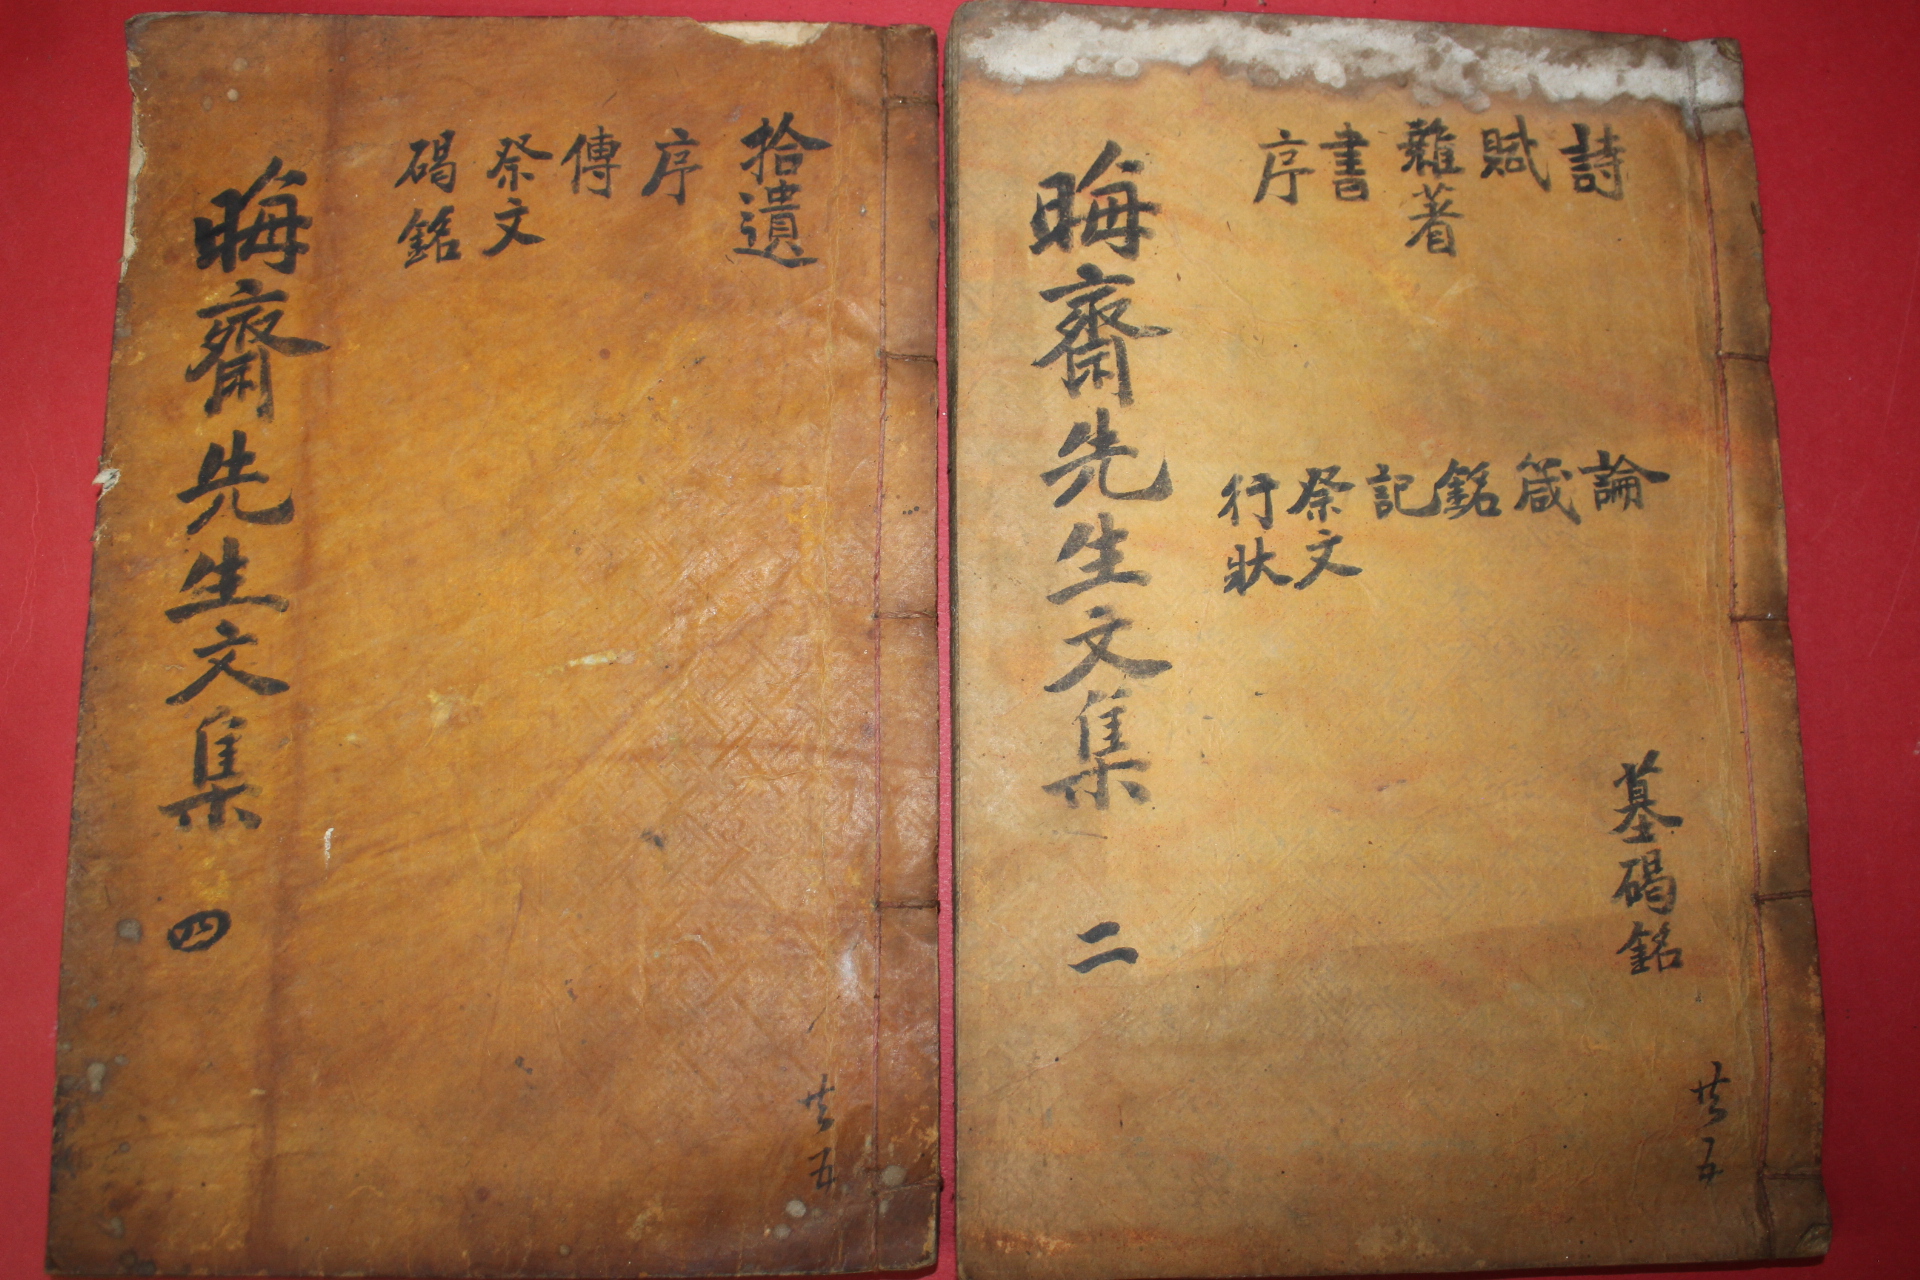 晦齋先生文集 二
詩
賦
雜著
書
序
論
箴
銘
記
祭文
行狀
墓碣銘
共五
晦齋先生文集 四
拾遺
序
傳
祭文
碣銘
共五